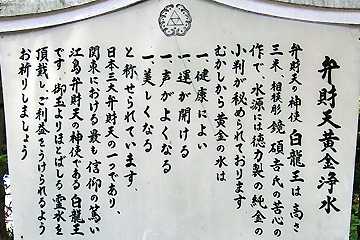 弁財天黄金浄水
弁財天の神使白龍王は高さ
三米、相模彫鏡碩吉氏の苦心の
作で、水源には徳力製の純金の
小判が秘められております
むかしから黄金の水は
一、健康によい
一、運が開ける
一、声がよくなる
一、美しくなる
と称せられています。
日本三大弁財天の一つであり、
関東における最も信仰の篤い
江島弁財天の神使である白龍王
です。御玉よりほとばしる霊水を
頂戴し、ご利益をうけられるよう
お祈りしましょう